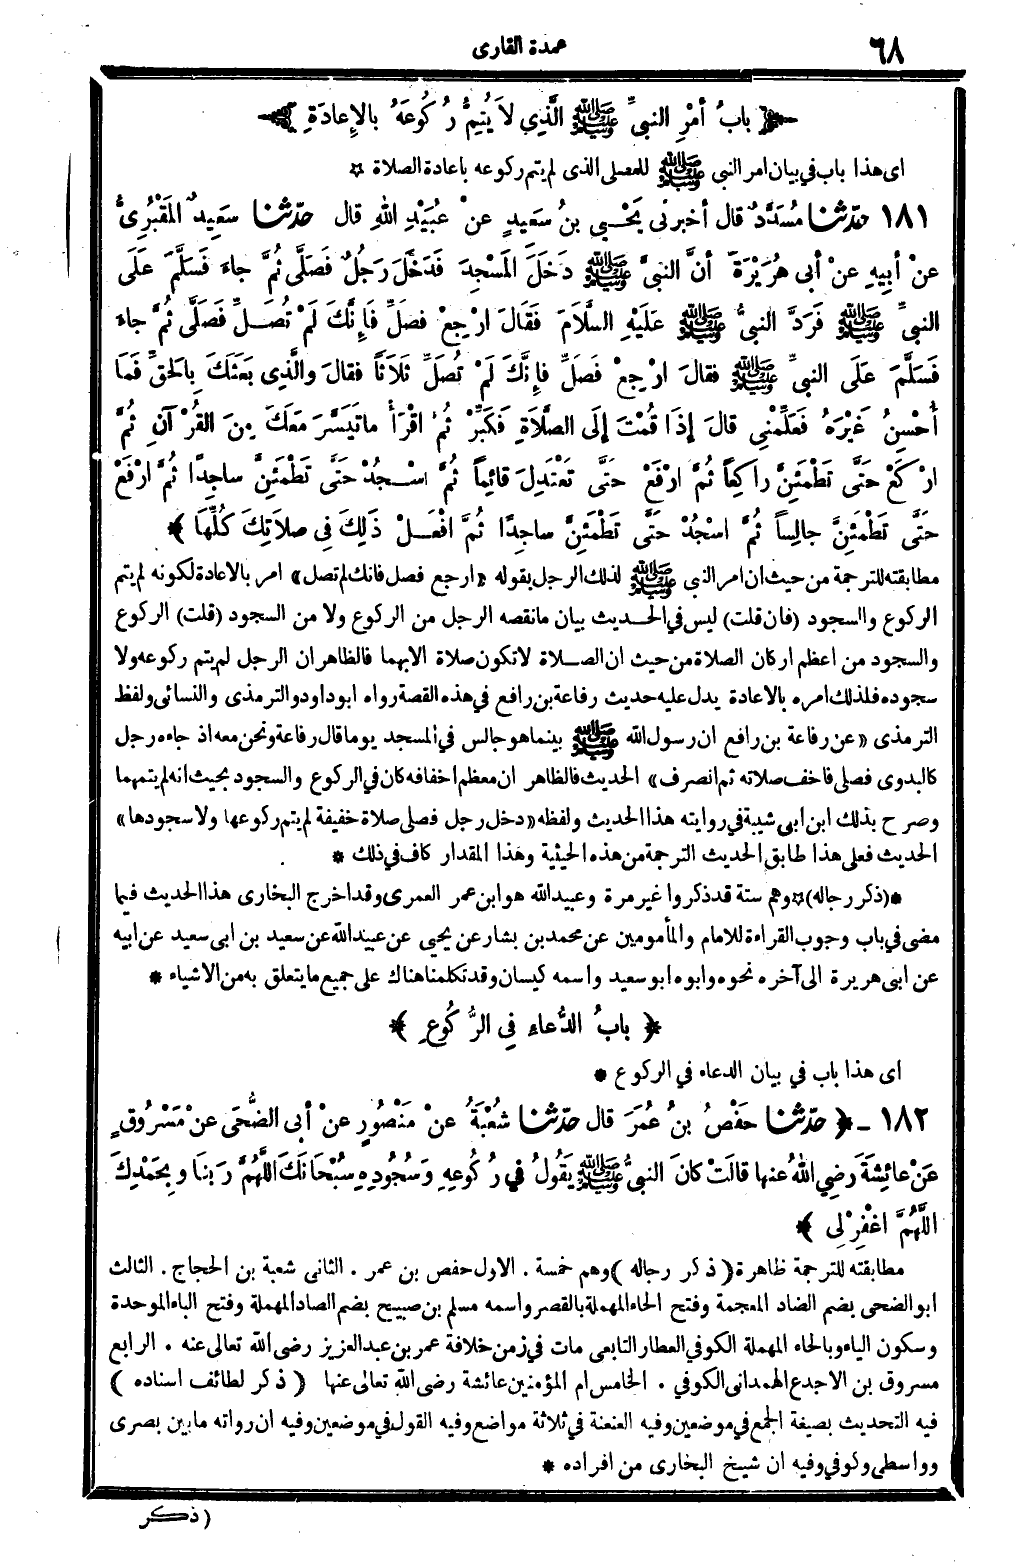 ٦٨
عمدة القارى
﴿ بابُ أمْرِ النبيِّ ﷺ الَّذِي لاَ يُتِمُّ رُكُوعَهُ بالإِعادَةِ ﴾
اى هذا باب فى بيان امر النبى ﷺ للمصلى الذى لم يتم ركوعه باعادة الصلاة ☆
١٨١ حدّثنا مُسَدَّدٌ قال أخبرنى يَحْيى بنُ سَعيدٍ عنْ عُبَيْدِ اللهِ قال حدّثنا سَعِيدٌ المَقْبُرِىُّ
عنْ أبِيهِ عنْ أبى هُرَيْرَةَ أنَّ النبيَّ ﷺ دَخَلَ المَسْجِدَ فَدَخَلَ رَجُلٌ فَصَلَّى ثُمَّ جاءَ فَسَلَّمَ عَلَى
النبيِّ ﷺ فَرَدَّ النبيُّ ﷺ عَلَيْهِ السَّلاَمَ فَقَالَ ارْجِعْ فَصَلِّ فَإِنَّكَ لَمْ تُصَلِّ فَصَلَّى ثُمَّ جاءَ
فَسَلَّمَ عَلَى النبيِّ ﷺ فقالَ ارْجِعْ فَصَلِّ فإنَّكَ لَمْ تُصَلِّ ثَلاَثاً فقالَ والَّذِى بَعَثَكَ بِالحَقِّ فَمَا
أُحْسِنُ غَيْرَهُ فَعَلِّمْنِي قالَ إذَا قُمْتَ إلَى الصَّلاَةِ فَكَبِّرْ ثُمَّ اقْرَأْ ماتَيَسَّرَ مَعَكَ مِنَ القُرْآنِ ثُمَّ
ارْكَعْ حَتَّى تَطْمَئِنَّ رَاكِعاً ثُمَّ ارْفَعْ حَتَّى تَعْتَدِلَ قائِماً ثُمَّ اسْجُدْ حَتَّى تَطْمَئِنَّ ساجِدًا ثُمَّ ارْفَعْ
حَتَّى تَطْمَئِنَّ جالِساً ثُمَّ اسْجُدْ حَتَّى تَطْمَئِنَّ ساجِدًا ثُمَّ افْعَلْ ذَلِكَ فِي صلاَتِكَ كُلِّهَا ﴾
مطابقته للترجمة من حيث ان امر النبى ﷺ لذلك الرجل بقوله «ارجع فصل فانك لم تصل» امر بالاعادة لكونه لم يتم
الركوع والسجود (فان قلت) ليس فى الحديث بيان مانقصه الرجل من الركوع ولا من السجود (قلت) الركوع
والسجود من اعظم اركان الصلاة من حيث ان الصلاة لاتكون صلاة الا بهما فالظاهر ان الرجل لم يتم ركوعه ولا
سجوده فلذلك امره بالاعادة يدل عليه حديث رفاعة بن رافع فى هذه القصة رواه ابو داود والترمذى والنسائى ولفظ
الترمذى «عن رفاعة بن رافع ان رسول الله ﷺ بينما هو جالس فى المسجد يوما قال رفاعة ونحن معه اذ جاءه رجل
كالبدوى فصلى فاخف صلاته ثم انصرف» الحديث فالظاهر ان معظم اخفافه كان فى الركوع والسجود بحيث انه لم يتمهما
وصرح بذلك ابن ابى شيبة فى روايته هذا الحديث ولفظه «دخل رجل فصلى صلاة خفيفة لم يتم ركوعها ولا سجودها»
الحديث فعلى هذا طابق الحديث الترجمة من هذه الحيثية وهذا المقدار كاف فى ذلك *
*(ذكر رجاله)☆ وهم ستة قد ذكروا غير مرة وعبيد الله هو ابن عمر العمرى وقد اخرج البخارى هذا الحديث فيما
مضى فى باب وجوب القراءة للامام والمأمومين عن محمد بن بشار عن يحيى عن عبيد الله عن سعيد بن ابى سعيد عن ابيه
عن ابى هريرة الى آخره نحوه وابوه ابو سعيد واسمه كيسان وقد تكلمنا هناك على جميع ما يتعلق به من الاشياء *
﴿ بابُ الدُّعاءِ فِي الرُّكُوعِ ﴾
اى هذا باب فى بيان الدعاء فى الركوع *
١٨٢ ـ ﴿ حدّثنا حَفْصُ بنُ عُمَرَ قال حدّثنا شُعْبَةُ عنْ مَنْصُورٍ عنْ أبى الضُّحَى عنْ مَسْرُوقٍ
عَنْ عائِشَةَ رضِي اللهُ عنها قالَتْ كانَ النبيُّ ﷺ يَقُولُ فِي رُكُوعِهِ وَسُجُودِهِ سُبْحَانَكَ اللَّهُمَّ رَبنَا وبِحَمْدِكَ
اللَّهُمَّ اغْفِرْلِى ﴾
مطابقته للترجمة ظاهرة (ذكر رجاله) وهم خمسة . الاول حفص بن عمر . الثانى شعبة بن الحجاج . الثالث
ابو الضحى بضم الضاد المعجمة وفتح الحاء المهملة بالقصر واسمه مسلم بن صبيح بضم الصاد المهملة وفتح الباء الموحدة
وسكون الياء وبالحاء المهملة الكوفى العطار التابعى مات فى زمن خلافة عمر بن عبد العزيز رضى الله تعالى عنه . الرابع
مسروق بن الاجدع الهمدانى الكوفى . الخامس ام المؤمنين عائشة رضى الله تعالى عنها (ذكر لطائف اسناده)
فيه التحديث بصيغة الجمع فى موضعين وفيه العنعنة فى ثلاثة مواضع وفيه القول فى موضعين وفيه ان رواته مابين بصرى
وواسطى وكوفى وفيه ان شيخ البخارى من افراده *
(ذكر